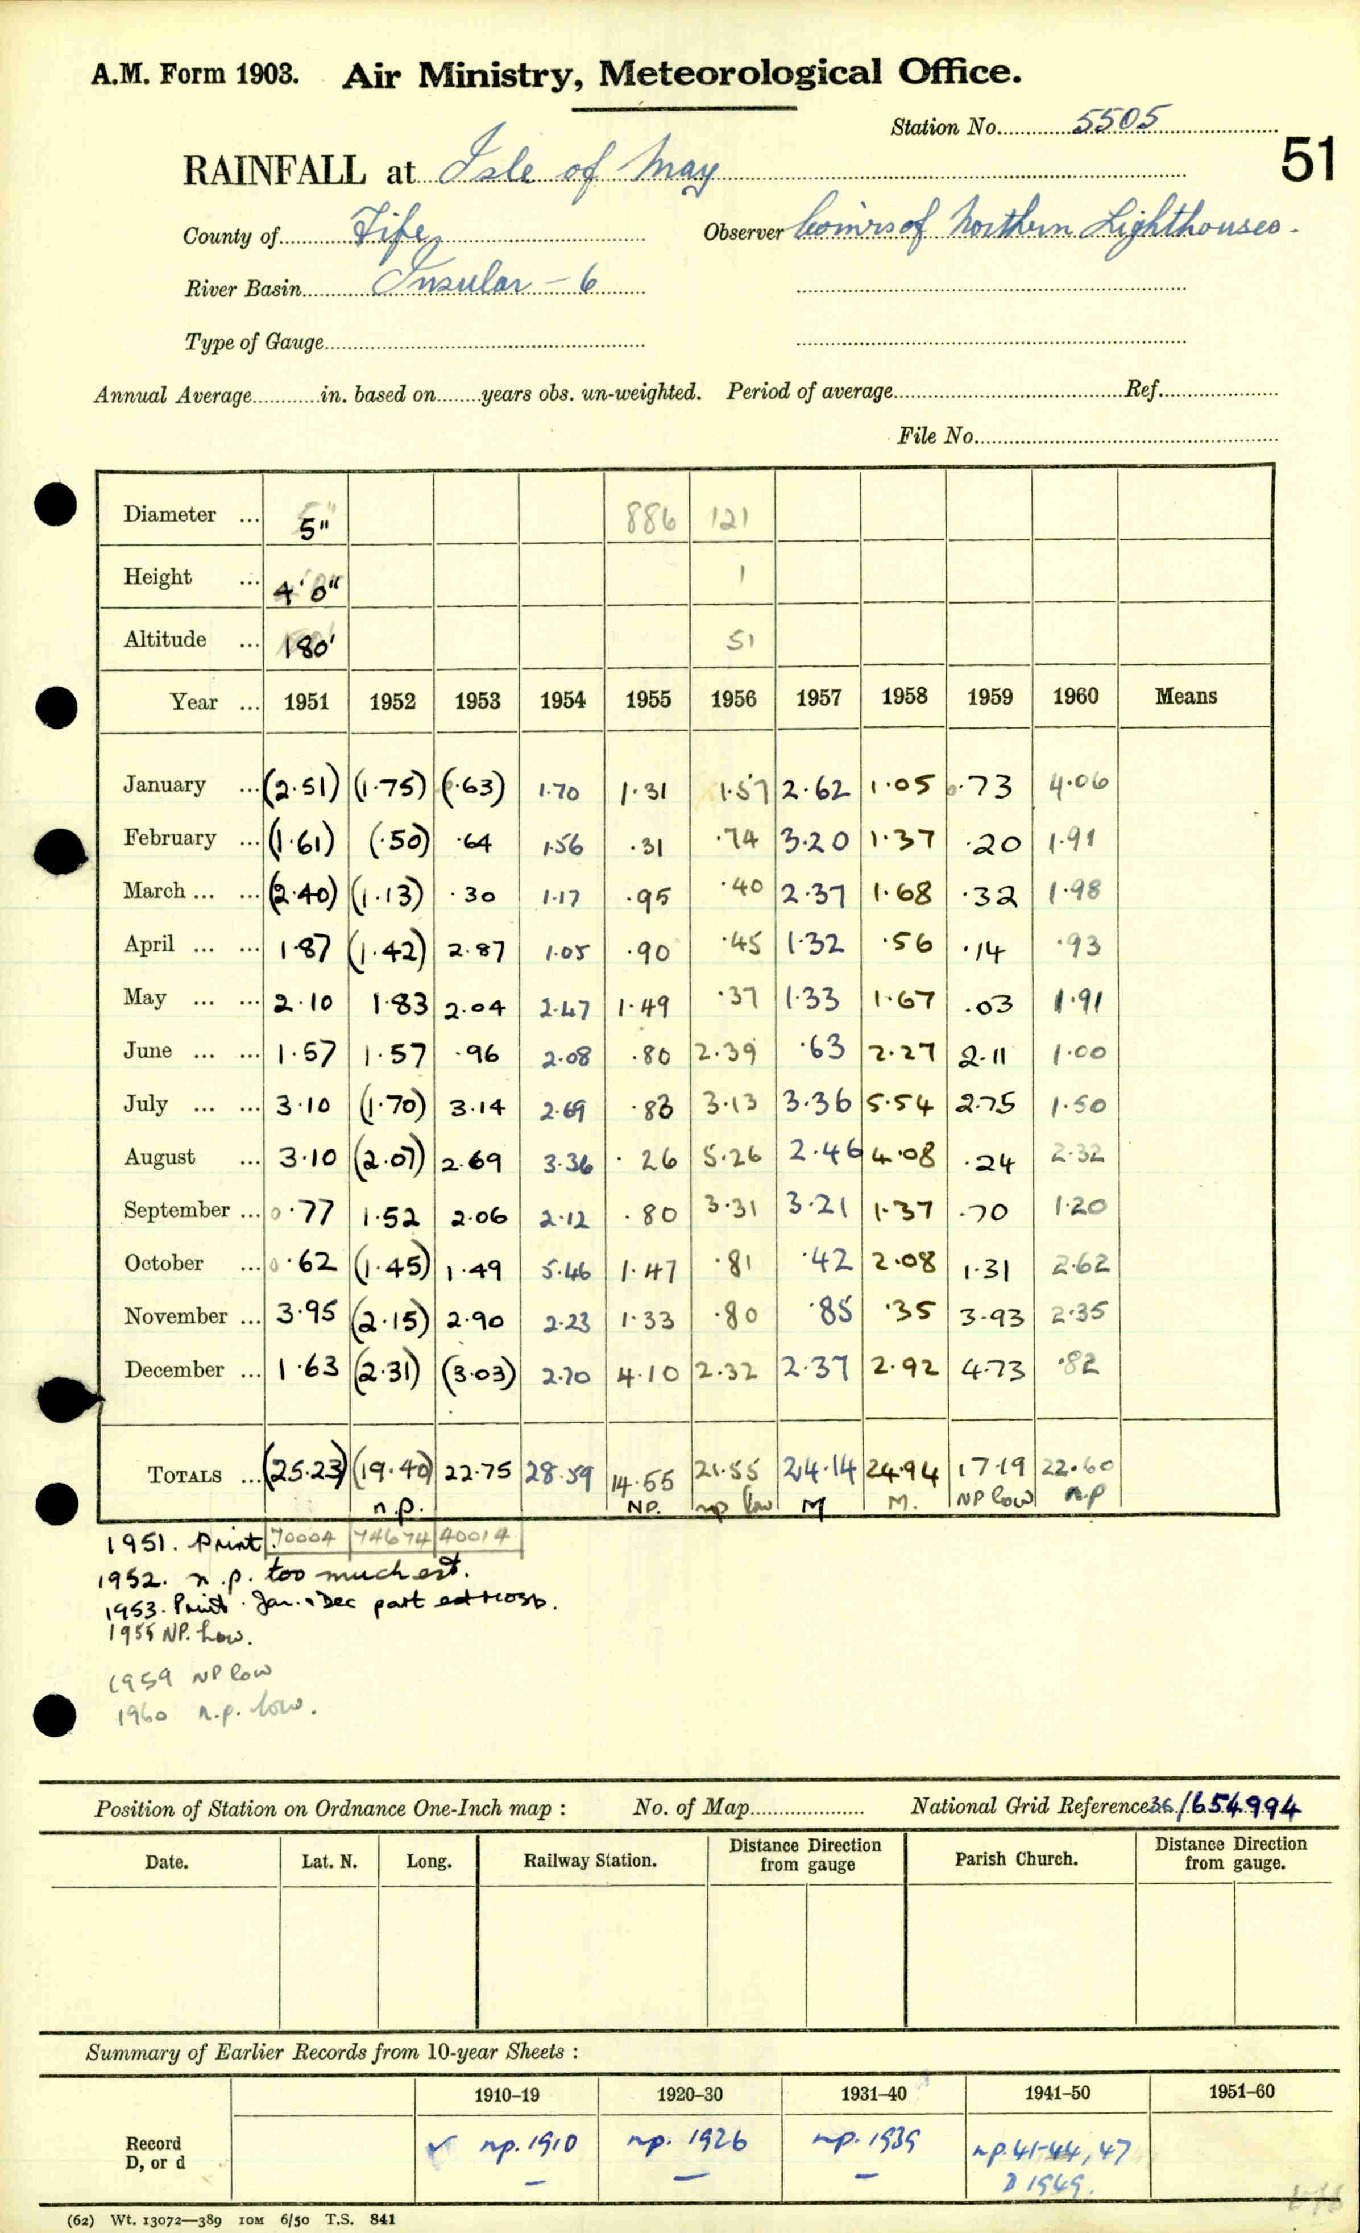 A.M. Form 1903. Air Ministry, Meteorological Office.
Station No. 5505
51
RAINFALL at Isle of May
County of Fife Observer Comrs of Northern Lighthouses.
River Basin Insular – 6
Type of Gauge
Annual Average in. based on years obs. un-weighted. Period of average Ref.
File No.
Diameter ... 5" 886 121
Height ... 4' 0" 1
Altitude ... 180' 51
Year ... 1951 1952 1953 1954 1955 1956 1957 1958 1959 1960 Means
January ... (2.51) (1.75) (.63) 1.70 1.31 1.57 2.62 1.05 0.73 4.06
February ... (1.61) (.50) .64 1.56 .31 .74 3.20 1.37 .20 1.91
March ... ... (2.40) (1.13) .30 1.17 .95 .40 2.37 1.68 .32 1.98
April ... ... 1.87 (1.42) 2.87 1.05 .90 .45 1.32 .56 .14 .93
May ... ... 2.10 1.83 2.04 2.47 1.49 .37 1.33 1.67 .03 1.91
June ... ... 1.57 1.57 .96 2.08 .80 2.39 .63 2.27 2.11 1.00
July ... ... 3.10 (1.70) 3.14 2.69 .83 3.13 3.36 5.54 2.75 1.50
August ... 3.10 (2.07) 2.69 3.36 .26 5.26 2.46 4.08 .24 2.32
September ... 0.77 1.52 2.06 2.12 .80 3.31 3.21 1.37 .70 1.20
October ... 0.62 (1.45) 1.49 5.46 1.47 .81 .42 2.08 1.31 2.62
November ... 3.95 (2.15) 2.90 2.23 1.33 .80 .85 .35 3.93 2.35
December ... 1.63 (2.31) (3.03) 2.70 4.10 2.32 2.37 2.92 4.73 .82
TOTALS ... (25.23) (19.40) 22.75 28.59 14.55 21.55 24.14 24.94 17.19 22.60
n.p. NP. np low M M. NP low n.p
1951. Print. 70004 74674 40014
1952. n.p. too much est.
1953. Print. Jan. & Dec part est
1955 NP. Low.
1959 NP low
1960 n.p. low.
Position of Station on Ordnance One-Inch map : No. of Map National Grid Reference 36/654994
Date. Lat. N. Long. Railway Station. Distance Direction from gauge Parish Church. Distance Direction from gauge.
Summary of Earlier Records from 10-year Sheets :
1910–19 1920–30 1931–40 1941–50 1951–60
Record D, or d ✓ np. 1910 np. 1926 np. 1939 np. 41-44, 47
– – – D 1949.
(62) Wt. 13072—389 10M 6/50 T.S. 841